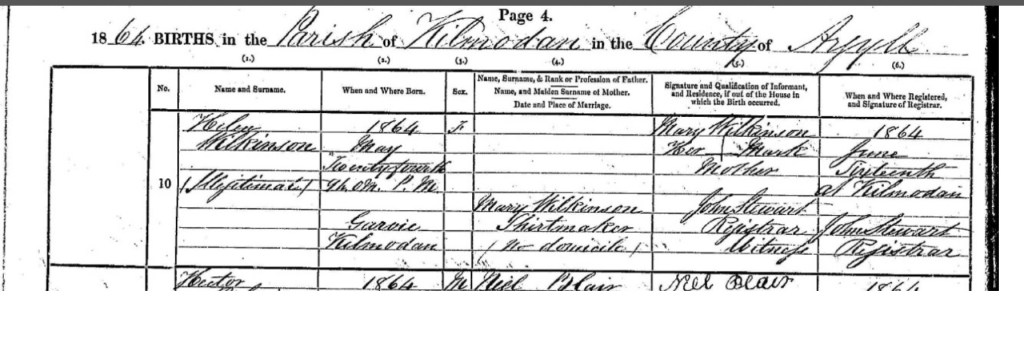 Page 4.
1864. BIRTHS in the Parish of Kilmodan in the County of Argyll
(1.) (2.) (3.) (4.) (5.) (6.)
No. Name and Surname. When and Where Born. Sex. Name, Surname, & Rank or Profession of Father. Name, and Maiden Surname of Mother. Date and Place of Marriage. Signature and Qualification of Informant, and Residence, if out of the House in which the Birth occurred. When and Where Registered, and Signature of Registrar.
10
Helen
Wilkinson
(Illegitimate)
1864
May
Twenty fourth
P. M.
Garvie
Kilmodan
F
Mary Wilkinson
Shirtmaker
(No domicile)
Mary Wilkinson
Her Mark
Mother
John Stewart
Registrar
Witness
1864
June
Sixteenth
at Kilmodan
John Stewart
Registrar
Hector 1864 M Niel Blair Niel Blair 1864